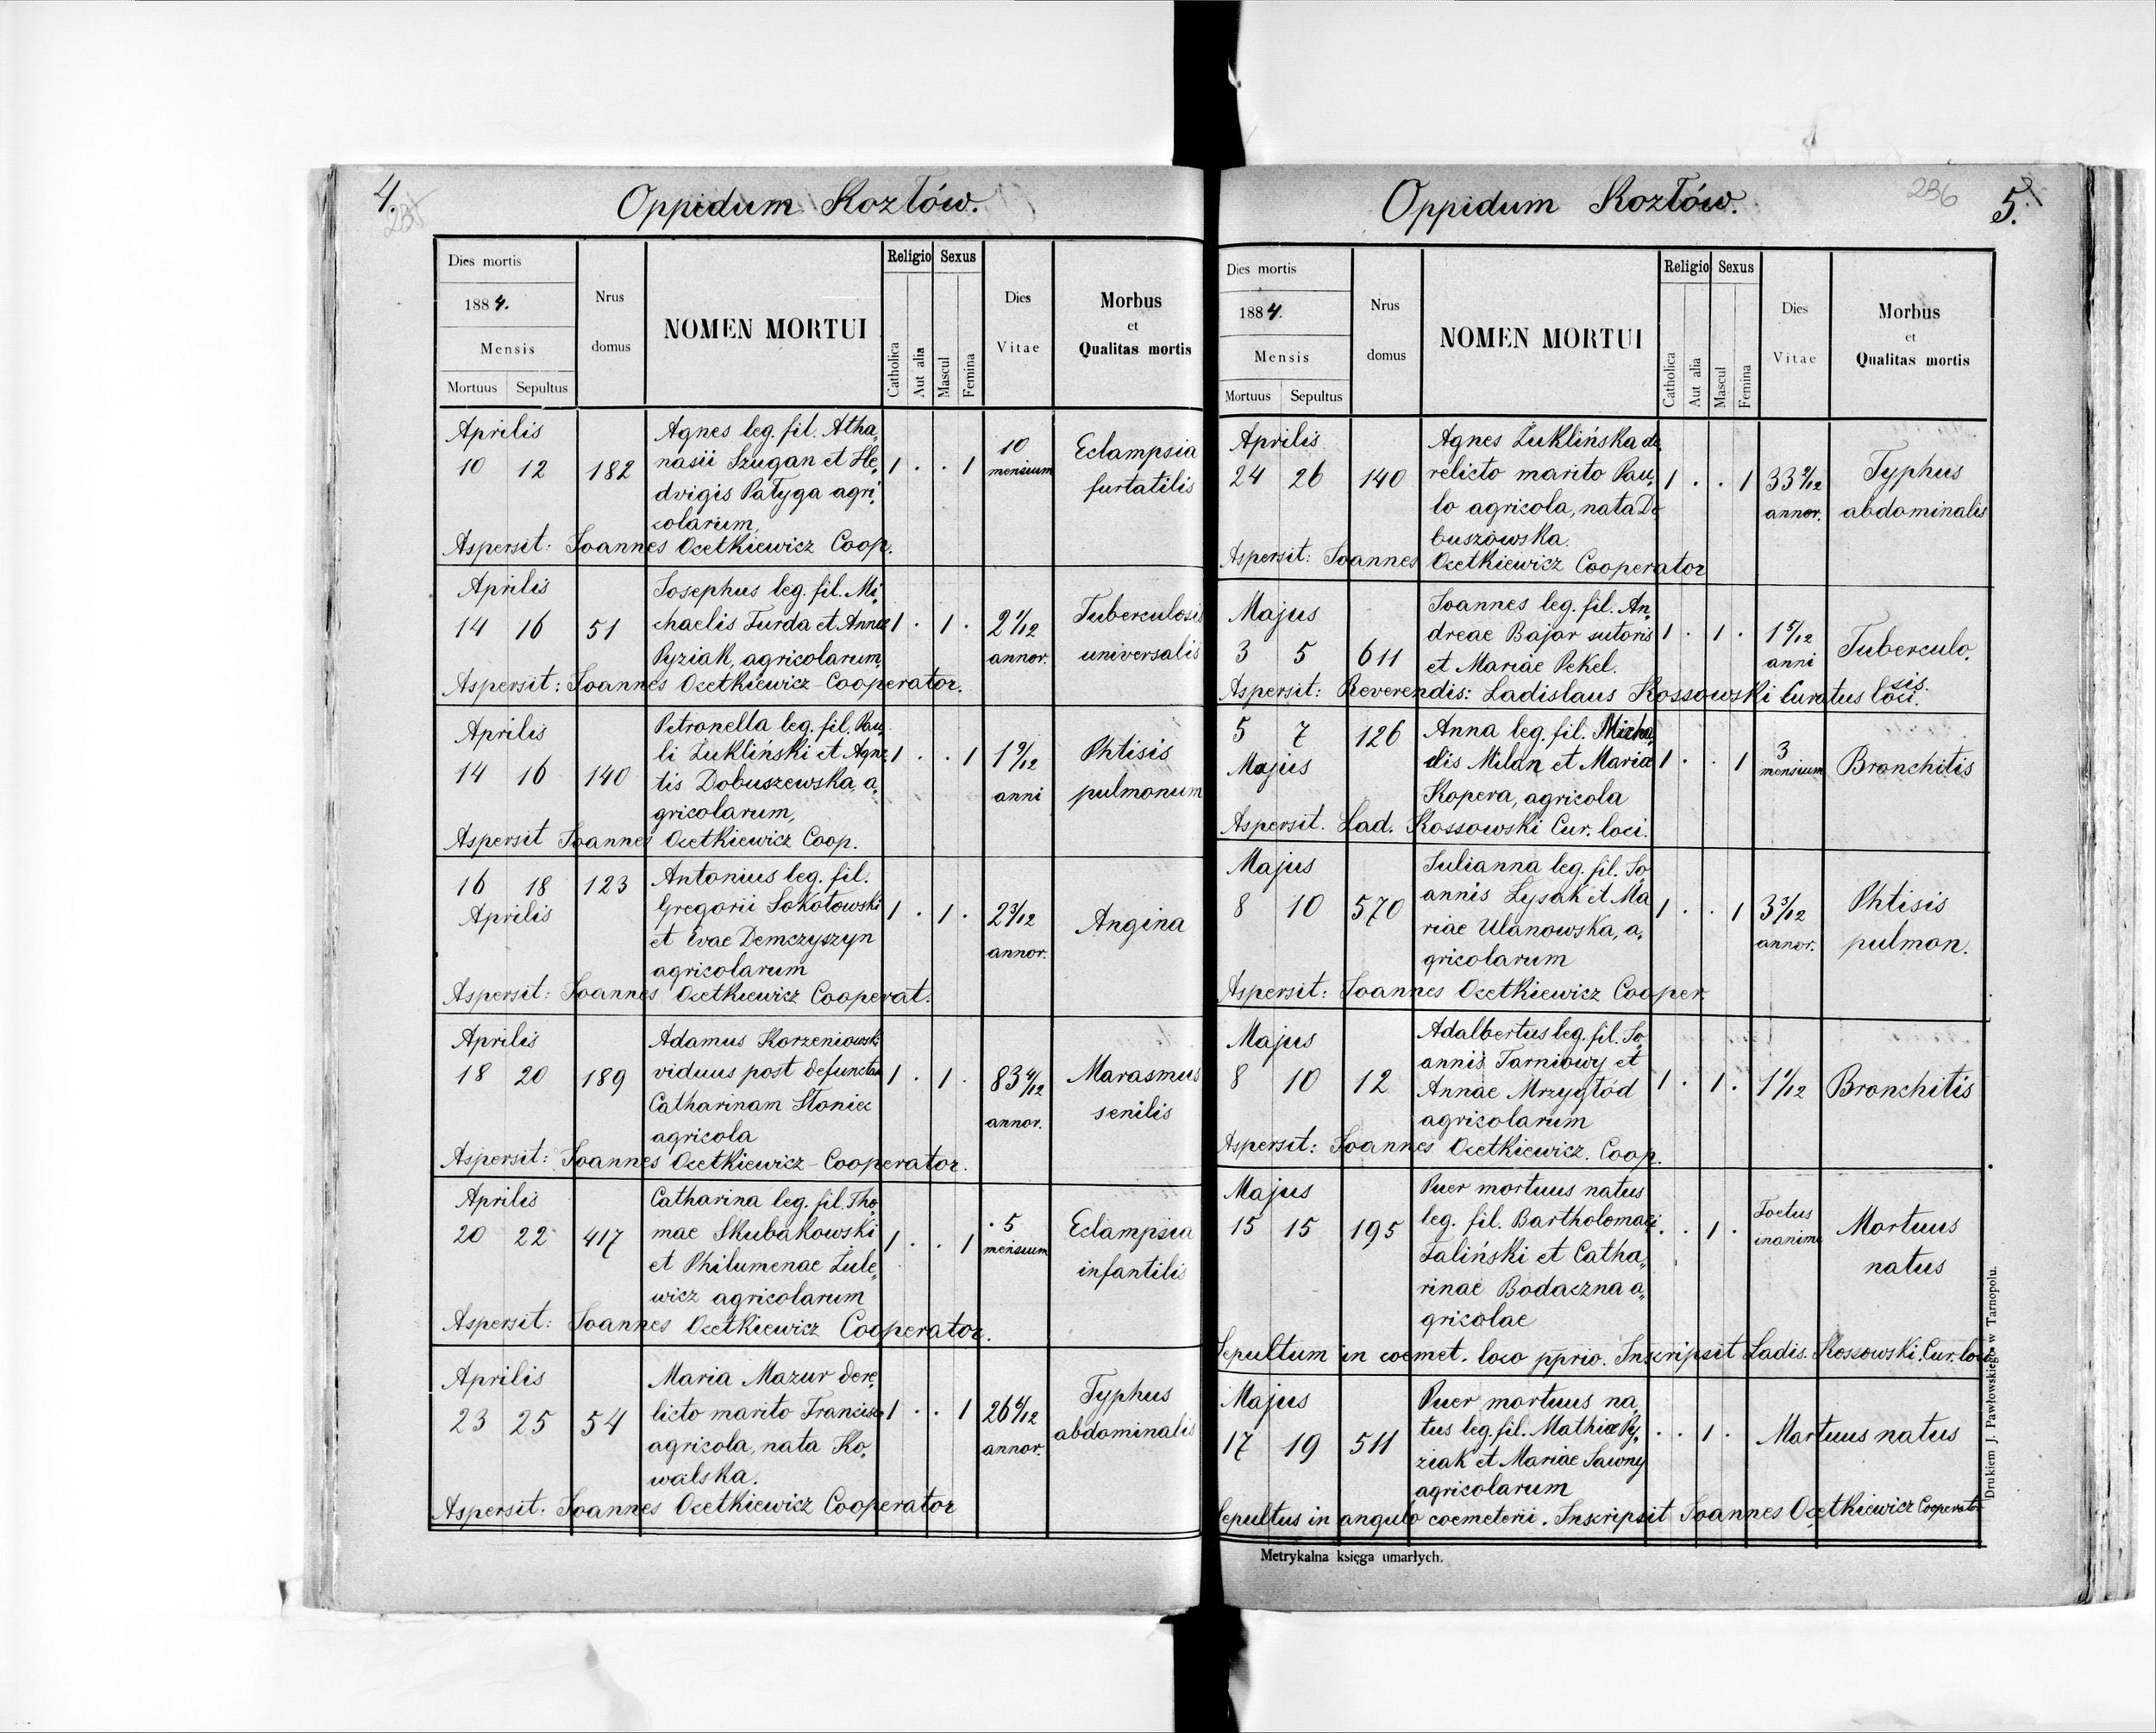 4.
235
Oppidum Kozłów.
Dies mortis
1884.
Mensis
Mortuus Sepultus
Nrus
domus
NOMEN MORTUI
Religio
Catholica
Aut alia
Sexus
Mascul
Femina
Dies
Vitae
Morbus
et
Qualitas mortis
Aprilis
10 12 182
Agnes leg. fil. Atha„
nasii Szugan et He„
dvigis Patyga agri„
colarum,
1 . . 1
10
mensium
Eclampsia
furtatilis
Aspersit: Joannes Ocetkiewicz Coop.
Aprilis
14 16 51
Josephus leg. fil. Mi„
chaelis Furda et Annae
Pyziak, agricolarum,
1 . 1 .
2 1/12
annor.
Tuberculosis
universalis
Aspersit: Joannes Ocetkiewicz Cooperator.
Aprilis
14 16 140
Petronella leg. fil. Pau„
li Żukliński et Agne„
tis Dobuszewska, a„
gricolarum,
1 . . 1
1 9/12
anni
Phtisis
pulmonum
Aspersit Joannes Ocetkiewicz Coop.
16 18 123
Aprilis
Antonius leg. fil.
Gregorii Sokołowski
et Evae Demczyszyn
agricolarum
1 . 1 .
2 3/12
annor.
Angina
Aspersit: Joannes Ocetkiewicz Cooperat.
Aprilis
18 20 189
Adamus Korzeniowski
viduus post defunctam
Catharinam Słoniec
agricola
1 . 1 .
83 4/12
annor.
Marasmus
senilis
Aspersit: Joannes Ocetkiewicz Cooperator.
Aprilis
20 22 417
Catharina leg. fil. Tho„
mae Skubakowski
et Philumenae Żule„
wicz agricolarum
1 . . 1
5
mensium
Eclampsia
infantilis
Aspersit: Joannes Ocetkiewicz Cooperator.
Aprilis
23 25 54
Maria Mazur dere„
licto marito Francisco
agricola, nata Ko„
walska.
1 . . 1
26 6/12
annor.
Typhus
abdominalis
Aspersit. Joannes Ocetkiewicz Cooperator
236
5.
Oppidum Kozłów.
Dies mortis
1884.
Mensis
Mortuus Sepultus
Nrus
domus
NOMEN MORTUI
Religio
Catholica
Aut alia
Sexus
Mascul
Femina
Dies
Vitae
Morbus
et
Qualitas mortis
Aprilis
24 26 140
Agnes Żuklińska de„
relicto marito Pau„
lo agricola, nata Do„
buszówska.
1 . . 1
33 2/12
annor.
Typhus
abdominalis
Aspersit: Joannes Ocetkiewicz Cooperator
Majus
3 5 611
Joannes leg. fil. An„
dreae Bajor sutoris
et Mariae Pekel.
1 . 1 .
1 5/12
anni
Tuberculo„
sis.
Aspersit: Reverendis: Ladislaus Kossowski Curatus loci.
5 7 126
Majus
Anna leg. fil. Micha„
elis Milan et Mariae
Kopera, agricola
1 . . 1
3
mensium
Bronchitis
Aspersit. Lad. Kossowski Cur. loci.
Majus
8 10 570
Julianna leg. fil. Jo„
annis Łysak et Ma
riae Ulanowska, a„
gricolarum
1 . . 1
3 3/12
annor.
Phtisis
pulmon.
Aspersit: Joannes Ocetkiewicz Cooper.
Majus
8 10 12
Adalbertus leg. fil. Jo„
annis Tarniowy et
Annae Mrzygłód
agricolarum
1 . 1 .
1 1/12
Bronchitis
Aspersit: Joannes Ocetkiewicz. Coop.
Majus
15 15 195
Puer mortuus natus
leg. fil. Bartholomaei
Faliński et Catha„
rinae Bodaczna a„
gricolae
. . 1 .
Foetus
inanime
Mortuus
natus
Sepultum in coemet. loco pprio. Inscripsit Ladis. Kossowski. Cur. loco
Majus
17 19 511
Puer mortuus na„
tus leg. fil. Mathiae Py„
ziak et Mariae Sawny
agricolarum
. . 1 .
Mortuus natus
Sepultus in angulo coemeterii. Inscripsit Joannes Ocetkiewicz Cooperator
Metrykalna księga umarłych.
Drukiem J. Pawłowskiego w Tarnopolu.